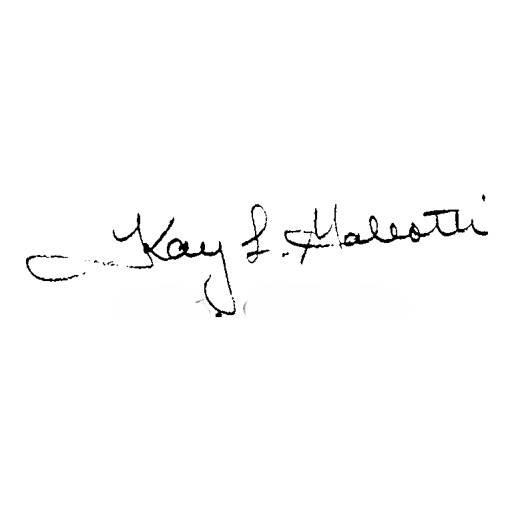 Kay L. Malleotti